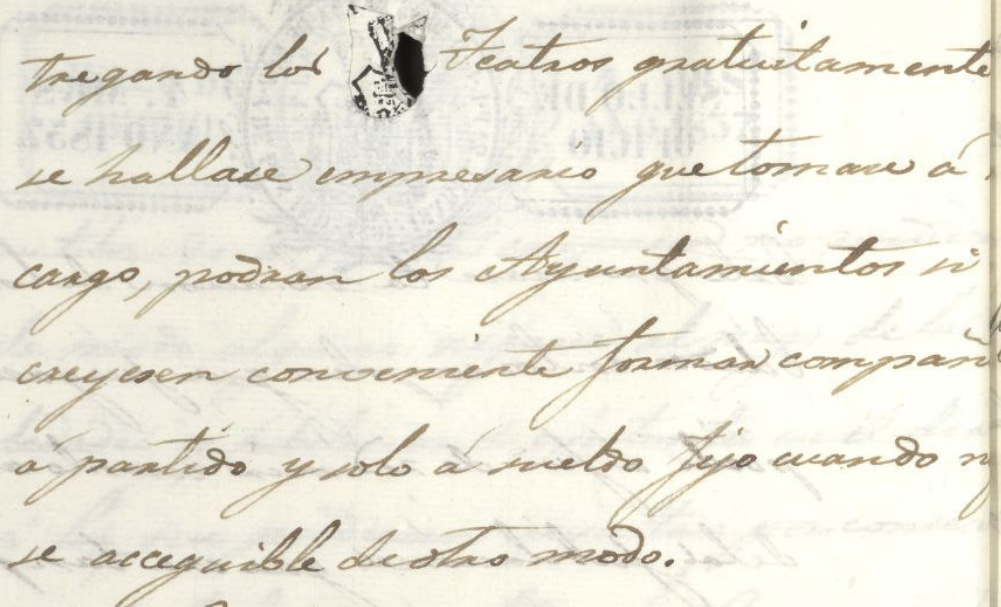 tregando los Teatros gratuitamente
se hallase empresario que tomare á
cargo, podran los Ayuntamientos si
creyesen conveniente formar compañi
á partido y solo á sueldo fijo cuando n
se accequible de otro modo.